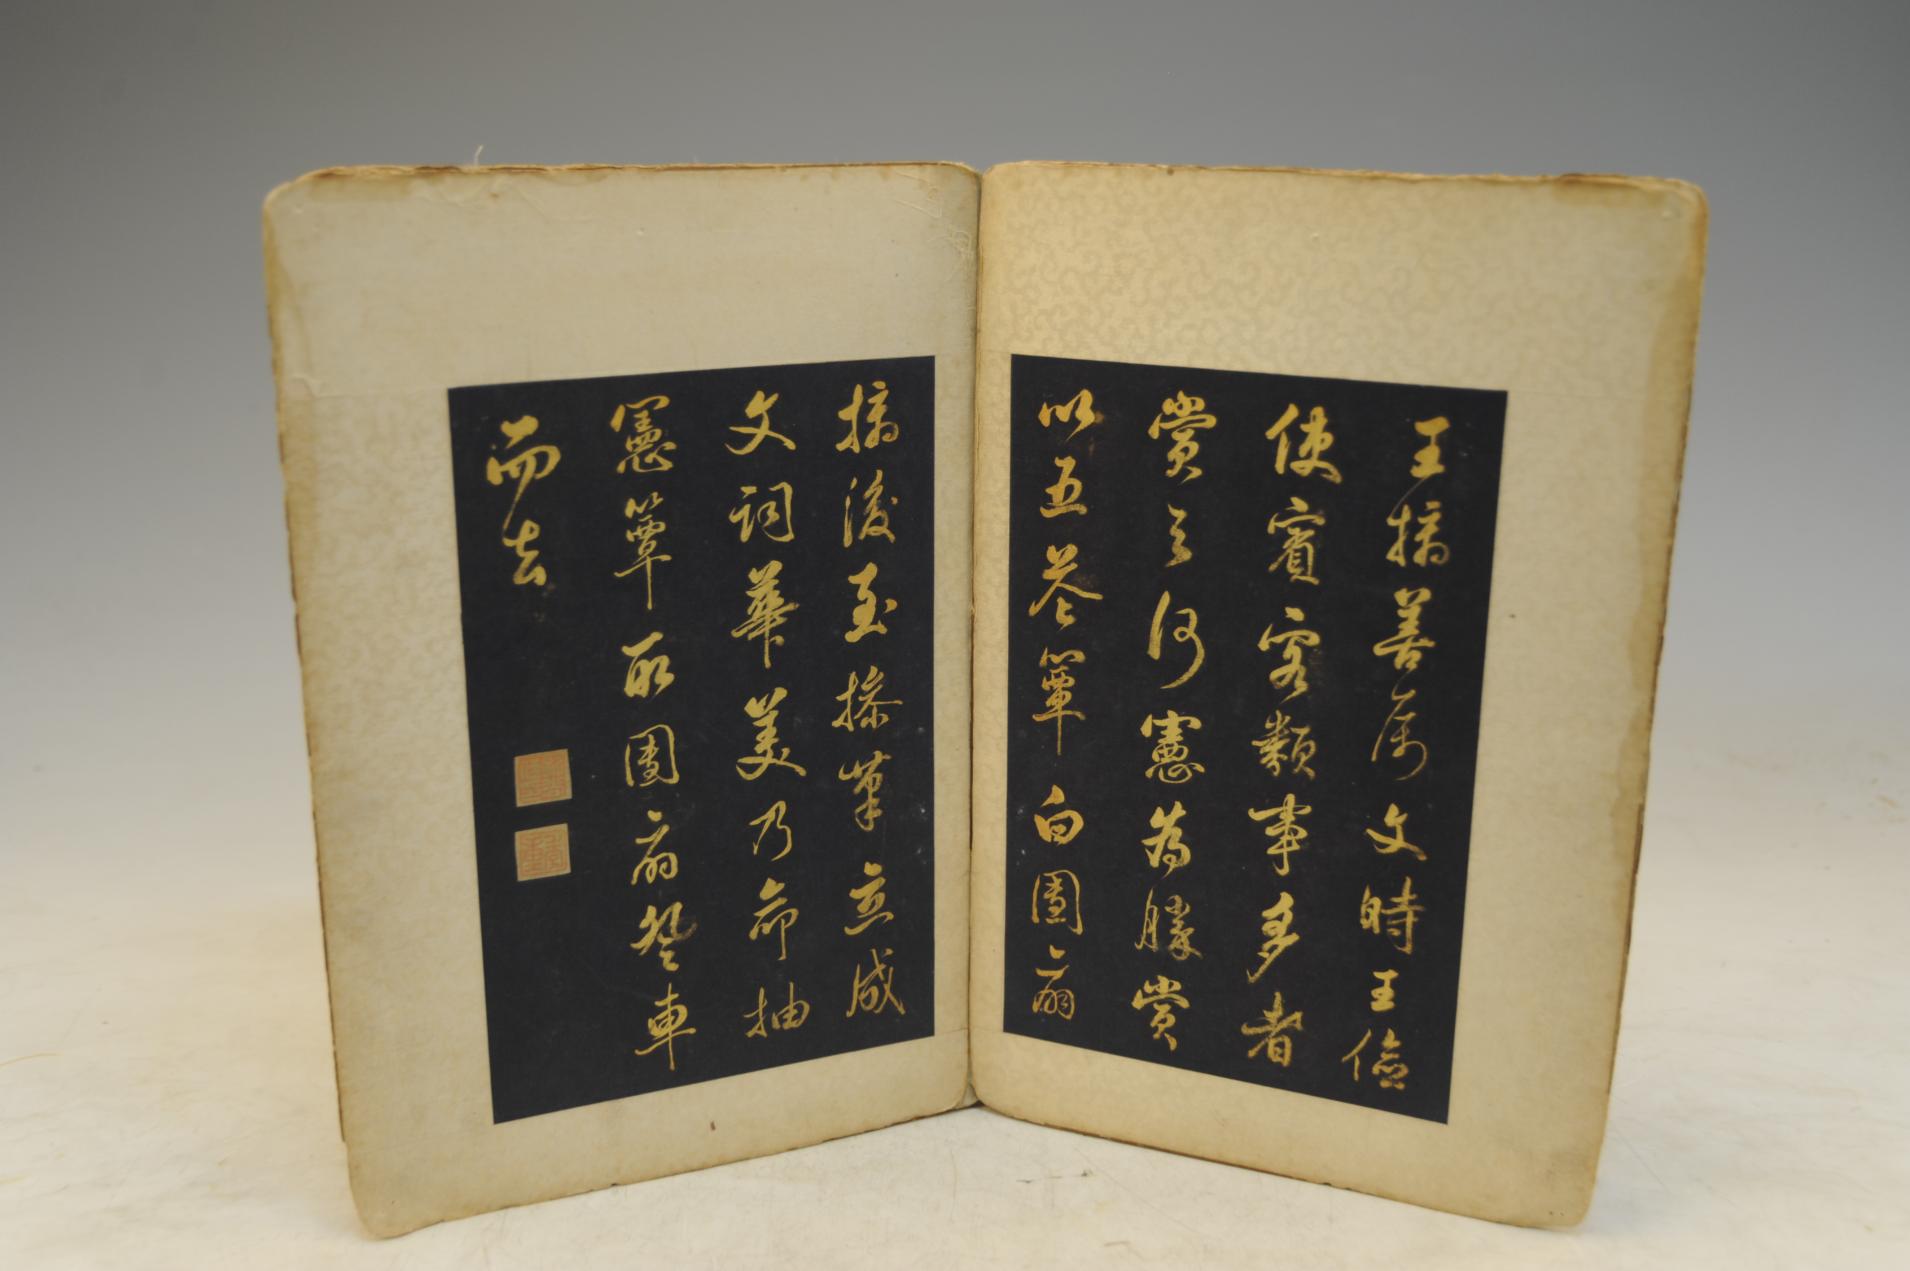 王摛善属文时王儉
使賓客類事多者
賞之何憲為勝賞
以五花簟白團扇
摛後至操筆立成
文詞華美乃命抽
憲簟取團扇登車
而去